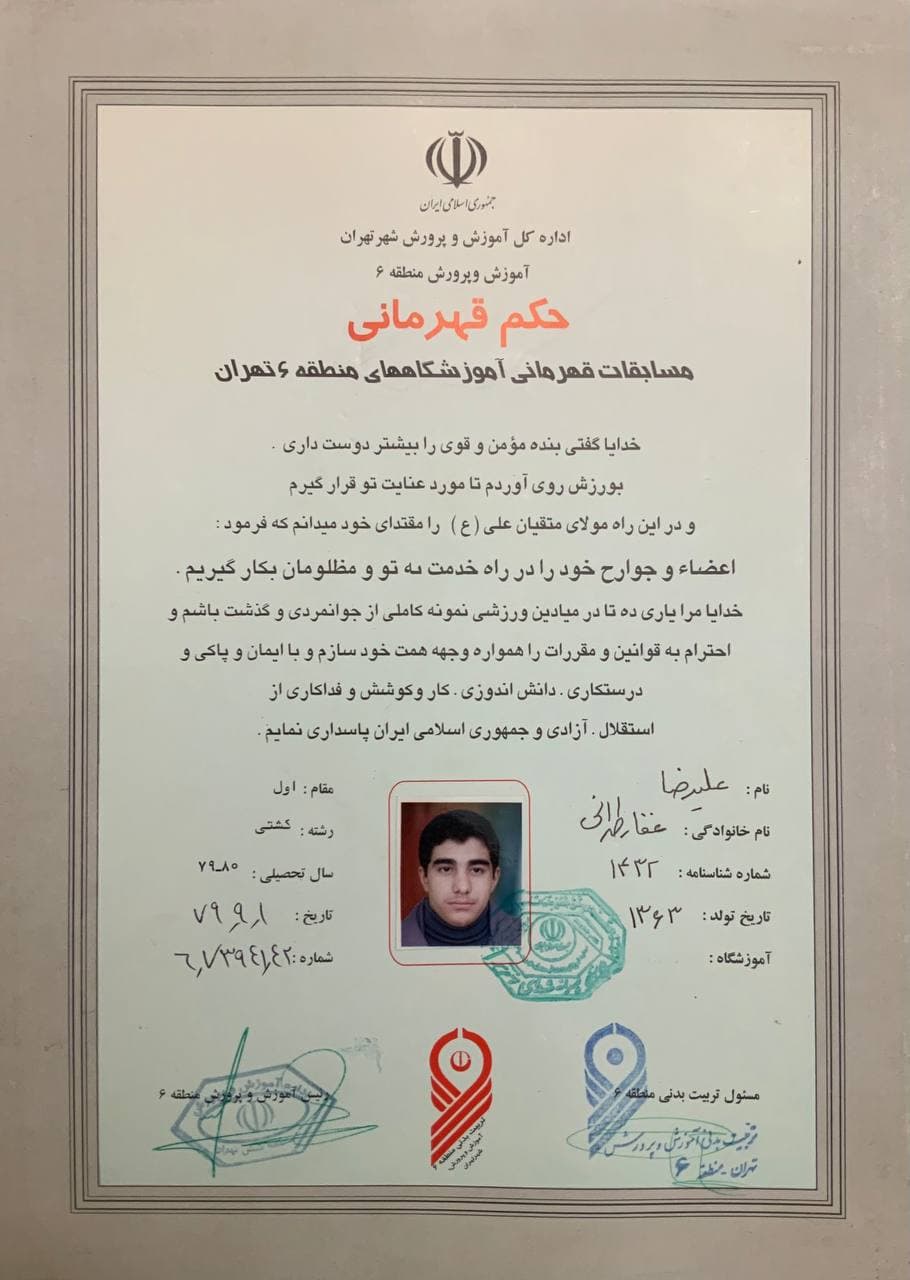 جمهوری اسلامی ایران
اداره کل آموزش و پرورش شهر تهران
آموزش و پرورش منطقه ۶
حکم قهرمانی
مسابقات قهرمانی آموزشگاههای منطقه ۶ تهران
خدایا گفتی بنده مؤمن و قوی را بیشتر دوست داری .
بورزش روی آوردم تا مورد عنایت تو قرار گیرم
و در این راه مولای متقیان علی (ع) را مقتدای خود میدانم که فرمود :
اعضاء و جوارح خود را در راه خدمت به تو و مظلومان بکار گیریم .
خدایا مرا یاری ده تا در میادین ورزشی نمونه کاملی از جوانمردی و گذشت باشم و
احترام به قوانین و مقررات را همواره وجهه همت خود سازم و با ایمان و پاکی و
درستکاری . دانش اندوزی . کار و کوشش و فداکاری از
استقلال . آزادی و جمهوری اسلامی ایران پاسداری نمایم .
نام : علیرضا
نام خانوادگی : غفار طهرانی
شماره شناسنامه : ۱۴۳۲
تاریخ تولد : ۱۳۶۳
آموزشگاه :
مقام : اول
رشته : کشتی
سال تحصیلی : ۸۰-۷۹
تاریخ : ۷۹٫۹٫۱
شماره :
مسئول تربیت بدنی منطقه ۶
تربیت بدنی آموزش و پرورش
تهران - منطقه ۶
تربیت بدنی منطقه ۶
آموزش و پرورش
شهر تهران
رئیس آموزش و پرورش منطقه ۶